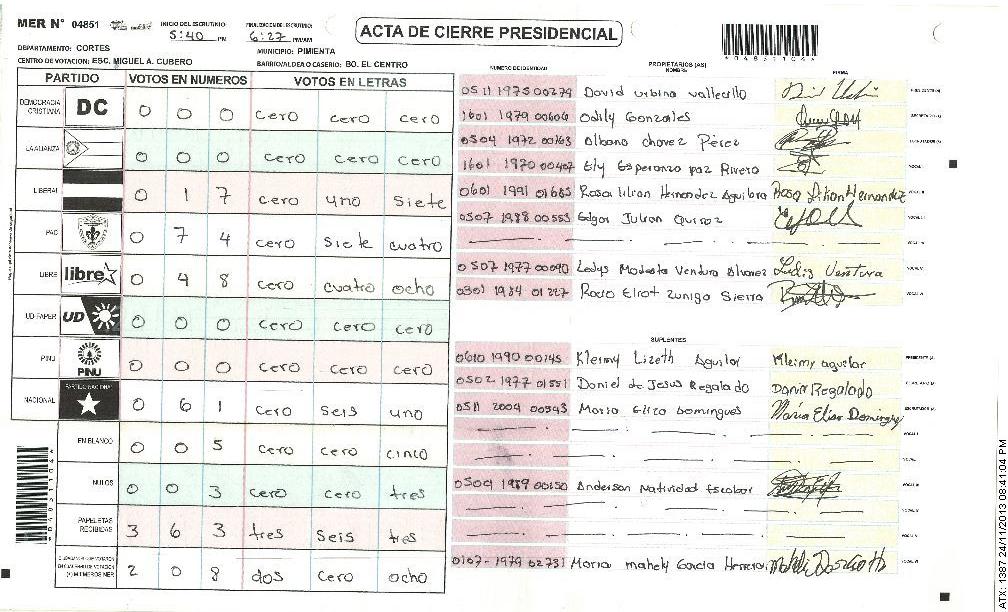 MER N° 04851
INICIO DEL ESCRUTINIO: 5:40 PM
FINALIZACION DEL ESCRUTINIO: 6:27 PM/AM
ACTA DE CIERRE PRESIDENCIAL
*04851104*
DEPARTAMENTO: CORTES
MUNICIPIO: PIMIENTA
CENTRO DE VOTACION: ESC. MIGUEL A. CUBERO
BARRIO/ALDEA O CASERIO: BO. EL CENTRO
PARTIDO VOTOS EN NUMEROS VOTOS EN LETRAS
DEMOCRACIA CRISTIANA DC 0 0 0 cero cero cero
LA ALIANZA 0 0 0 cero cero cero
LIBERAL 0 1 7 cero uno siete
PAC 0 7 4 cero siete cuatro
LIBRE libre 0 4 8 cero cuatro ocho
UD FAPER UD 0 0 0 cero cero cero
PINU PINU 0 0 0 cero cero cero
NACIONAL PARTIDO NACIONAL 0 6 1 cero seis uno
EN BLANCO 0 0 5 cero cero cinco
NULOS 0 0 3 cero cero tres
PAPELETAS RECIBIDAS 3 6 3 tres seis tres
2 0 8 dos cero ocho
NUMERO DE IDENTIDAD PROPIETARIOS (AS) NOMBRE FIRMA
0511 1975 00279 David urbina vallecillo
1601 1979 00606 Odily Gonzales
0504 1972 00163 Albano chavez Pérez
1601 1970 00407 Ely Esperanza paz Rivera
0601 1991 01665 Rosa lilian Hernandez Aguilera Rosa Lilian Hernandez
0507 1988 00553 Edgar Julian Quiroz
0507 1977 00090 Ledys Modesta Ventura Alvarez Ledis Ventura
0301 1984 01227 Rocio Elirot Zuniga Sierra
SUPLENTES
0610 1990 00745 Kleimy Lizeth Aguilar Kleimy aguilar
0502 1977 01551 Daniel de Jesus Regalado Daniel Regalado
0511 2004 00343 Maria Eliza Domingues Maria Elisa Domingues
0504 1989 00150 Anderson Natividad Escobar
0107-1979 02731 Maria mahely Garcia Herrera
*04851104*
ATX: 1387 24/11/2013 08:41:04 PM